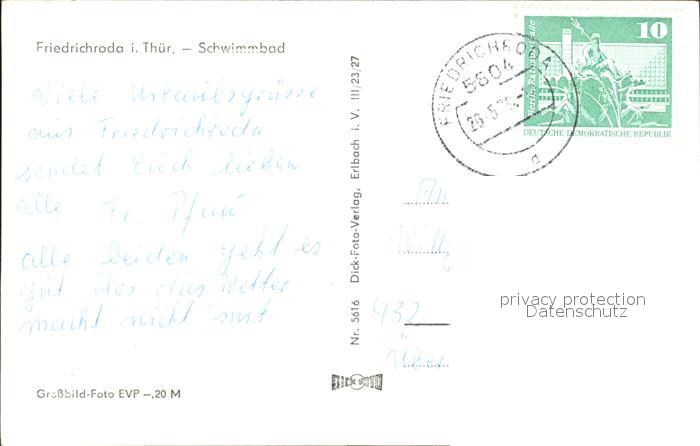 Friedrichroda i. Thür. – Schwimmbad
Viele Urlaubsgrüsse
aus Friedrichroda
sendet Euch lieben
alle Fr.
alle beiden geht es
gut das Wetter
macht nicht mit
Großbild-Foto EVP –,20 M
Nr. 5616 Dick-Foto-Verlag, Erlbach i. V. III/23/27
DICK FOTO
FRIEDRICHRODA
5804
a
10
DEUTSCHE DEMOKRATISCHE REPUBLIK
432
Über
privacy protection
Datenschutz